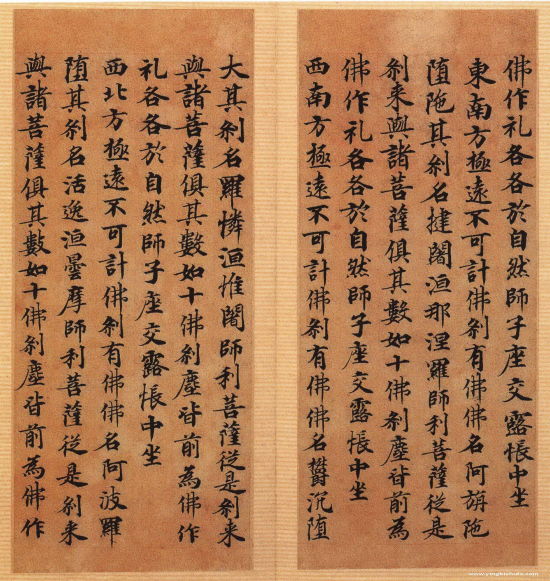 佛作礼各各於自然師子座交露帳中坐
東南方極遠不可計佛刹有佛佛名阿旃陁
堕陁其刹名揵闍洹那涅羅師利菩薩從是
刹来與諸菩薩俱其數如十佛刹塵皆前為
佛作礼各各於自然師子座交露帳中坐
西南方極遠不可計佛刹有佛佛名欝沉堕
大其刹名羅憐洹惟闍師利菩薩從是刹来
與諸菩薩俱其數如十佛刹塵皆前為佛作
礼各各於自然師子座交露帳中坐
西北方極遠不可計佛刹有佛佛名阿波羅
堕其刹名活逸洹曇摩師利菩薩從是刹来
與諸菩薩俱其數如十佛刹塵皆前為佛作
www.yingbishufa.com